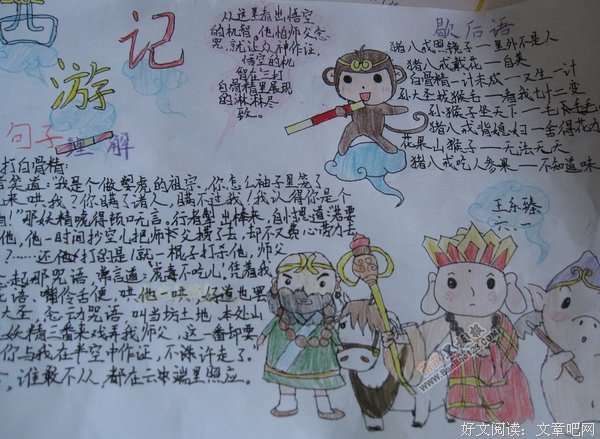 西游记
句子理解
从这里看出悟空
的机智,他怕师父念
咒,就让众神作证,
悟空的机
智在三打
白骨精里展现
的淋淋尽
致。
歇后语
猪八戒照镜子—里外不是人
猪八戒戴花—自美
白骨精—计未成—又生一计
孙大圣拔猴毛—看我七十二变
孙猴子坐天下—毛
猪八戒背媳妇—舍得花力
花果山猴子—无法无天
猪八戒吃人参果—不知道味
王乐臻
六.一
打白骨精:
笑道:我是个做
来哄我?你瞒了诸人,瞒不过我!我认得你是个
那妖精唬得顿口无言,行者掣出棒来,自忖思道:若要
他,他一时间抄空儿把师父捞了去,却不又费心劳力去
?……还他打的是!就一棍子打杀他,师父
念起那咒语,常言道:虎毒不吃儿,凭着我
花语,嘴伶舌便,哄他一哄,好道也罢
大圣,念动咒语,叫当坊土地、本处山
妖精三番来戏弄我师父,这一番却要
你与我在半空中作证,不许走了。
谁敢不从,都在云端里照应。
好文阅读:文章吧网